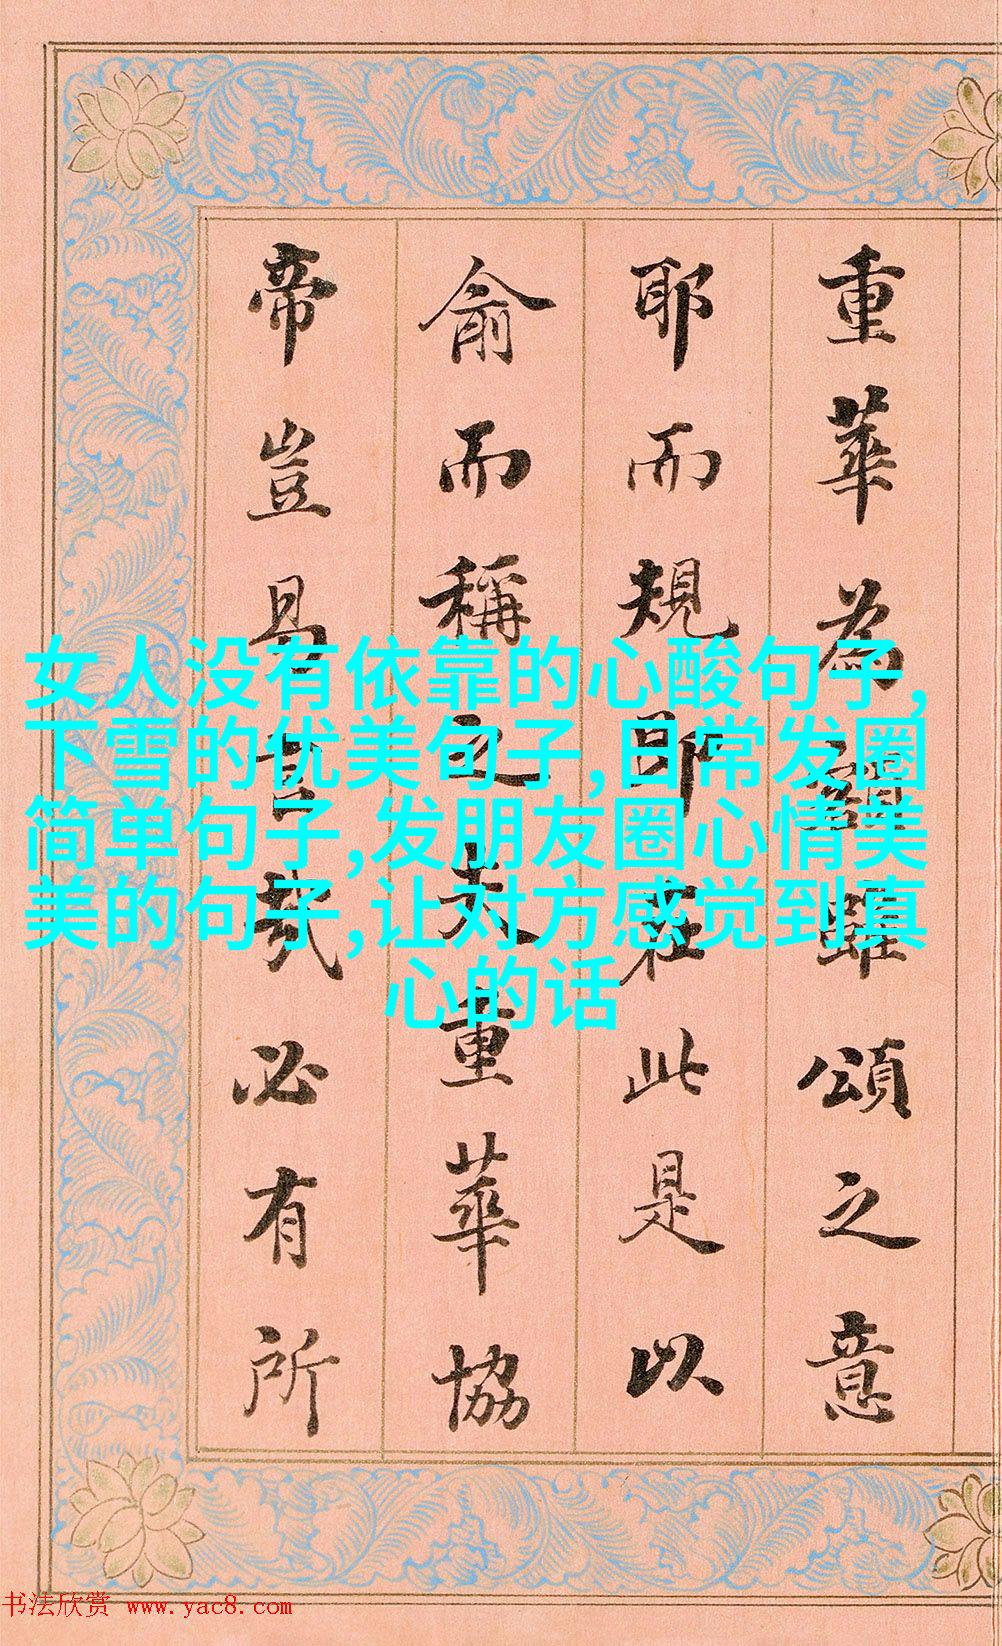 重華為雖頌之意
耶而規即在此是以
俞而稱之夫重華協
帝豈易言哉必有所
女人没有依靠的心酸句子,
下雪的优美句子,日常发圈
简单句子,发朋友圈心情美
美的句子,让对方感觉到真
心的话
书法欣赏 www.yac8.com